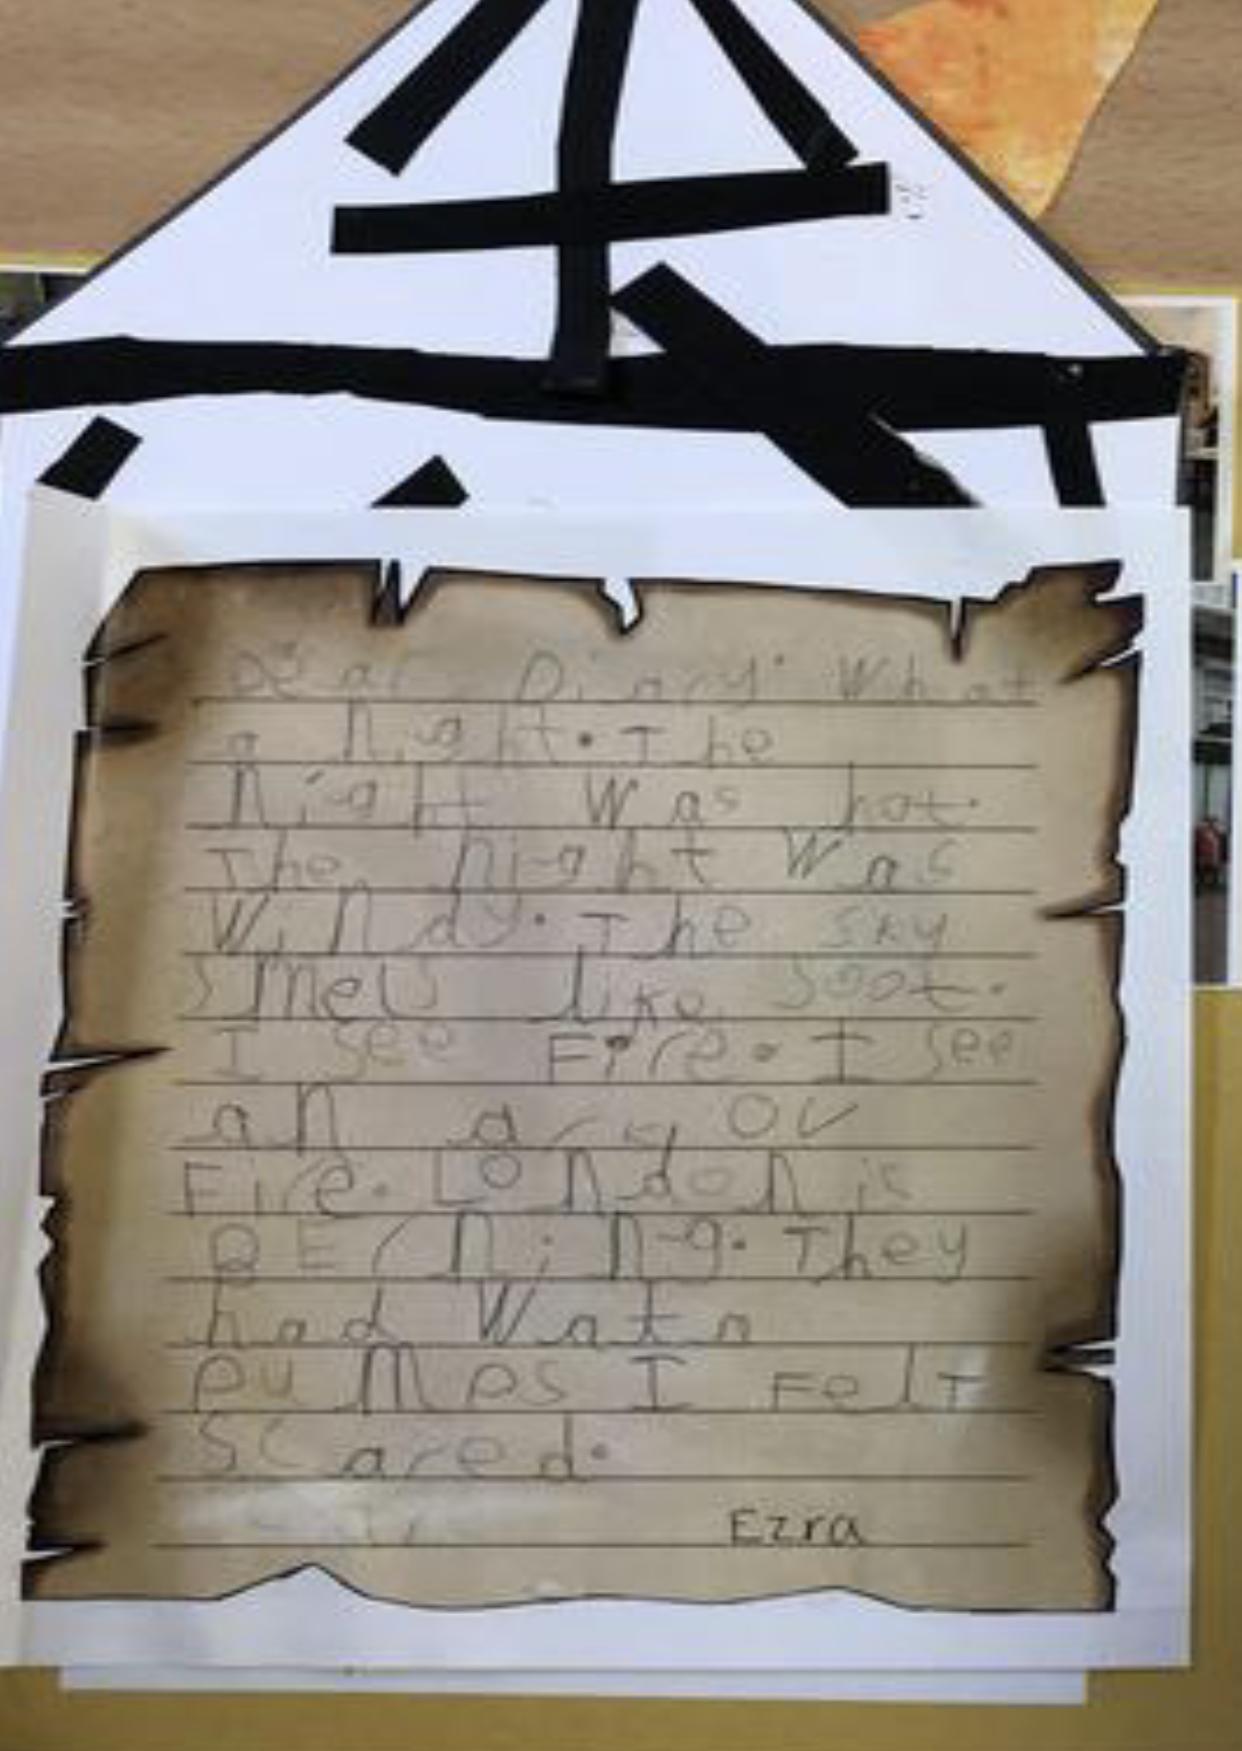 Dear Diary. What
a Night. The
Night Was hot.
The Night Was
Windy. The sky
smels like soot.
I see Fire. I see
an arg ov
Fire. London is
BErning. They
had Wata
pumps I Felt
scared.
Ezra